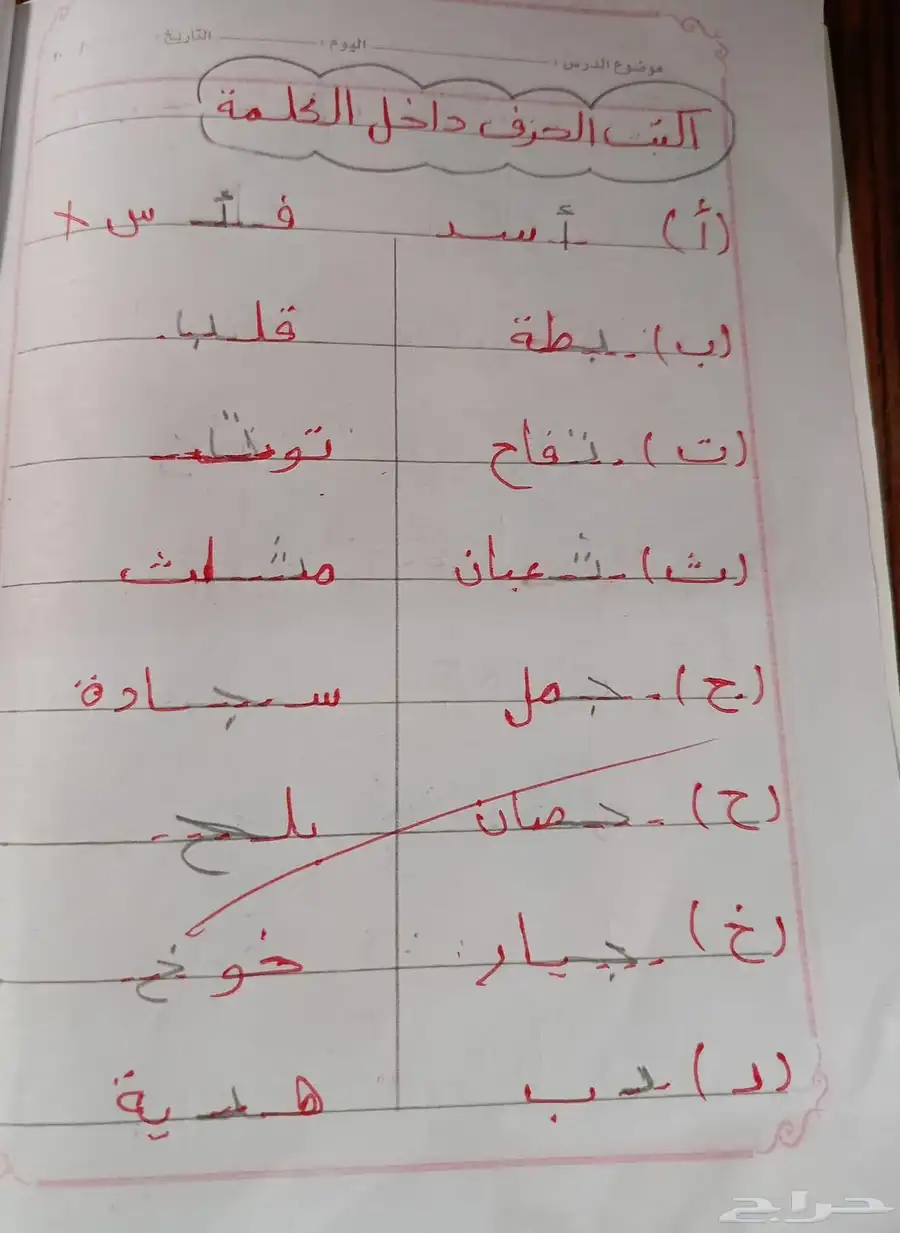 موضوع الدرس : اليوم : التاريخ : / ٢٠
اكتب الحرف داخل الكلمة
(أ) أسد فأس ×
(ب) بطة قلب
(ت) تفاح توت
(ث) ثعبان مثلث
(ج) جمل سجادة
(ح) حصان بلح
(خ) جيار خوخ
(د) دب هدية
حراج